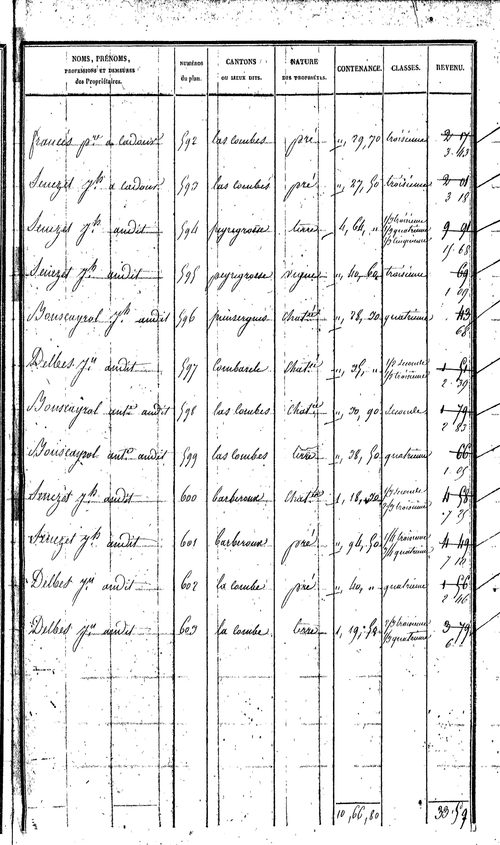 NOMS, PRÉNOMS, PROFESSIONS ET DEMEURES des Propriétaires. NUMÉROS du plan. CANTONS OU LIEUX DITS. NATURE DES PROPRIÉTÉS. CONTENANCE. CLASSES. REVENU.
francés pre a cadour 592 las combes pré „, 29, 70 troisieme 2 17
3. 43
Senezet jh a cadour 593 las combes pré „, 27, 50 troisieme 2 01
3 18
Senezet jh audit 594 peyregrosse terre 4, 64, „ 1/3 troisieme 1/3 quatrieme 1/3 cinquieme 9 91
15 68
Senezet jh audit 595 peyregrosse vigne „, 40, 60 troisieme 69
1 09
Bouscayrol jh audit 596 chatré „, 28, 20 quatrieme 43
68
Delbes jn audit 597 combarele chatré „, 35, „ 1/2 seconde 1/2 troisieme 1 51
2 39
Bouscayrol ante audit 598 las combes chatré „, 30, 90 seconde 1 79
2 83
Bouscayrol ante audit 599 las combes terre „, 38, 50 quatrieme 66
1 05
Senezet jh audit 600 barberoux chatré 1, 18, 20 1/3 seconde 2/3 troisieme 4 58
7 25
Senezet jh audit 601 barberoux pré „, 94, 50 1/4 troisieme 3/4 quatrieme 4 49
7 10
Delbes jn audit 602 la combe pré „, 40, „ quatrieme 1 56
2 46
Delbes jn audit 603 la combe terre 1, 19, 50 troisieme quatrieme 3 79
6
10, 66, 80 33. 59